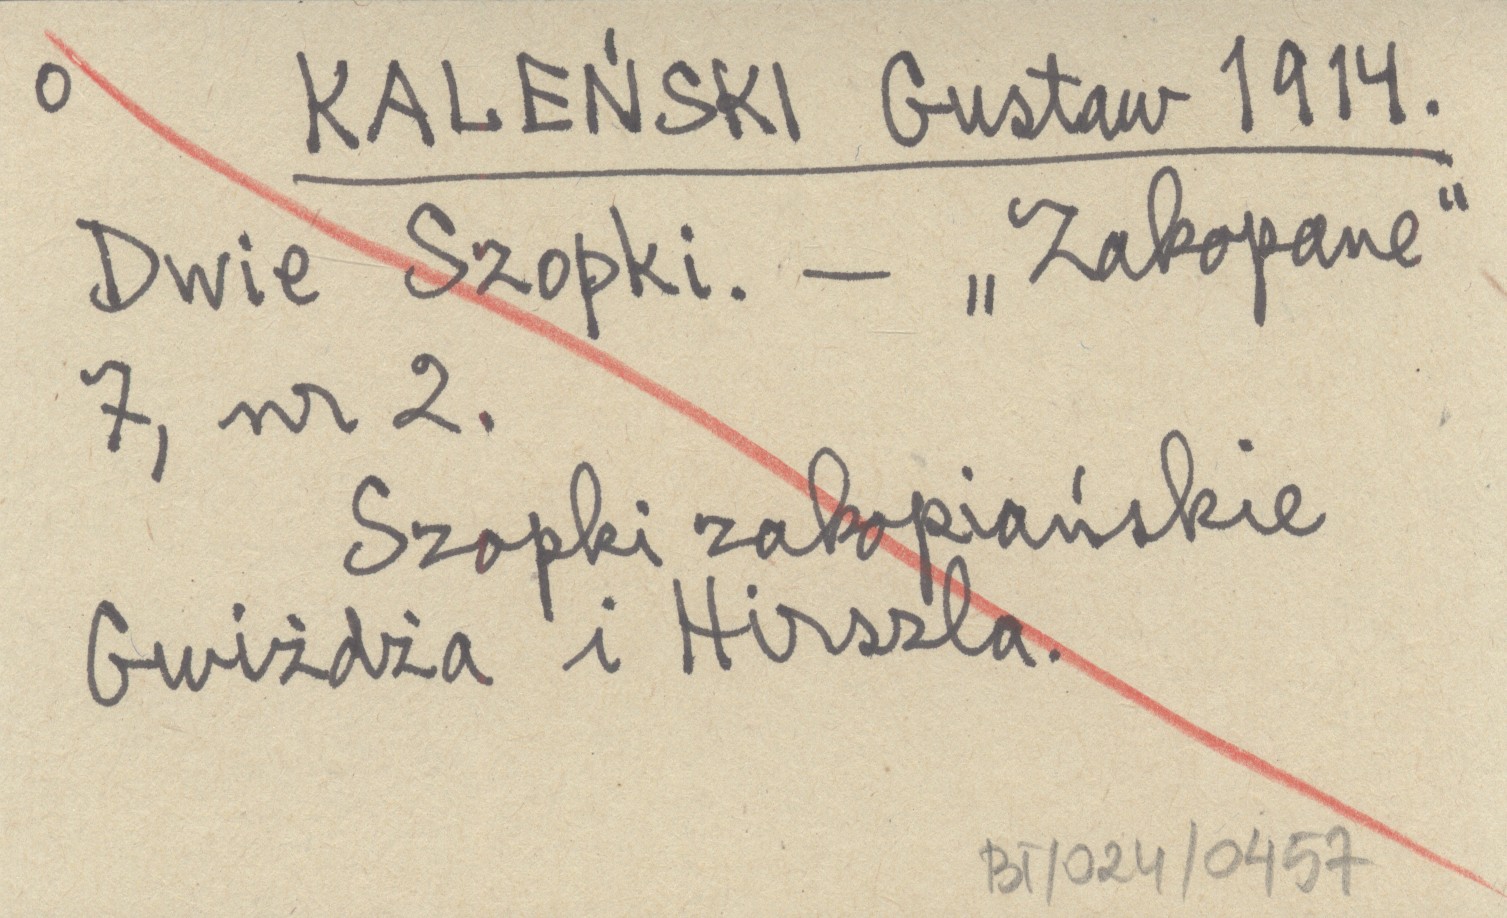 o KALEŃSKI Gustaw 1914.
Dwie Szopki. — „Zakopane“
7, nr 2.
Szopki zakopiańskie
Gwiżdża i Hirszla.
BT/024/0457